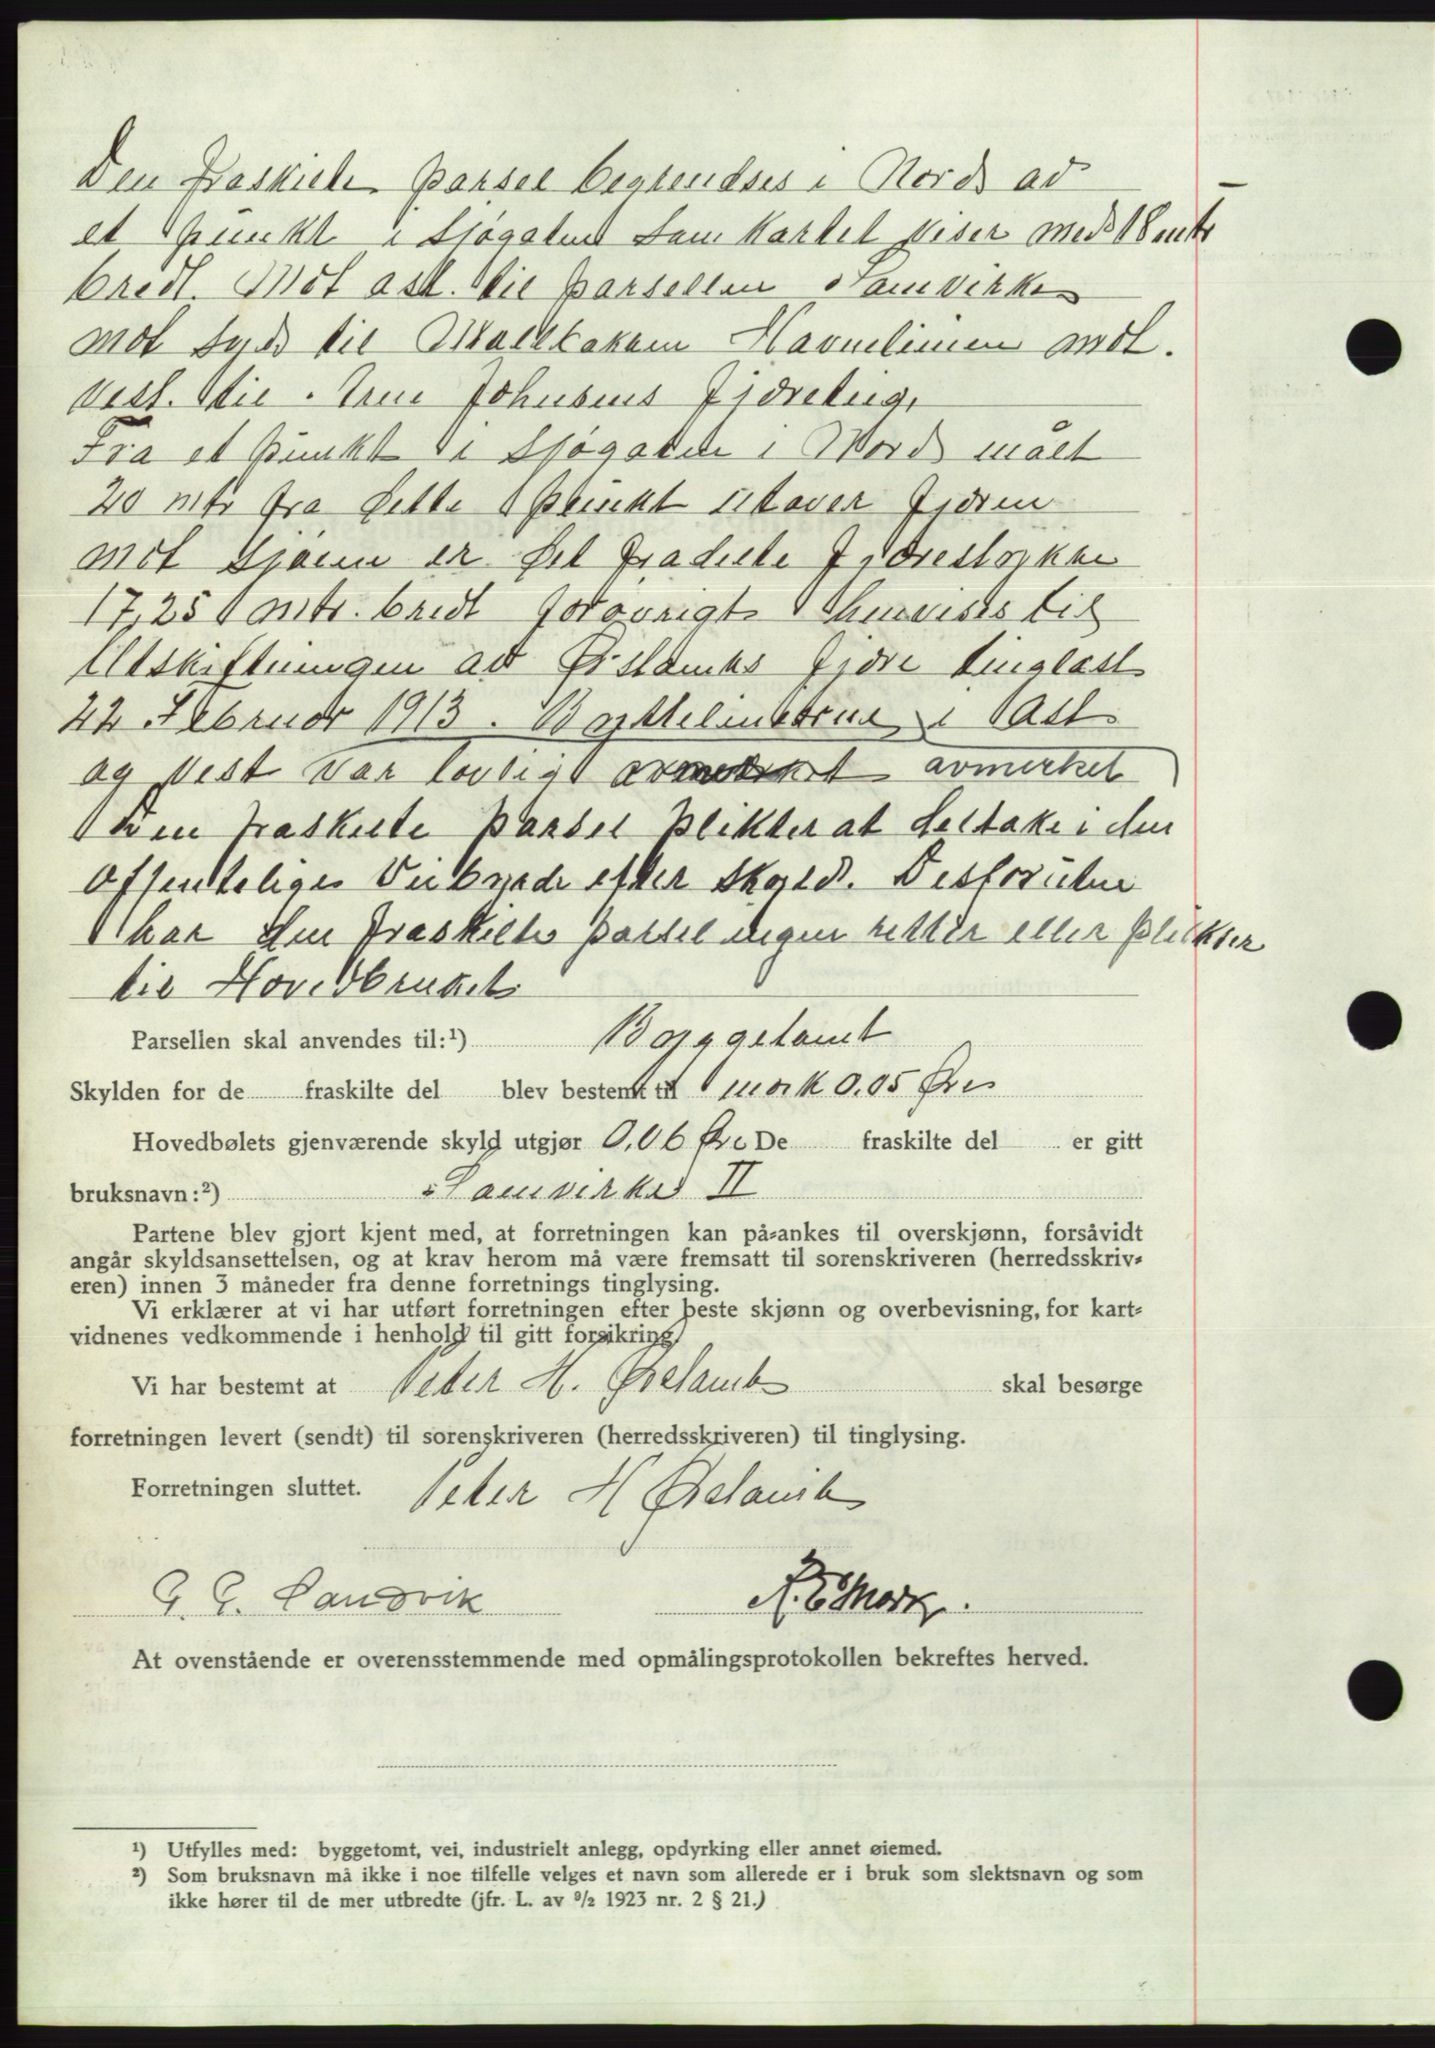 Den fraskilte parsel begrendses i Nord av
et punkt i Sjøgaten som kartet viser med 18 mtr
bredt. Mot øst. til parsellen Samvirke
mot syd til Havnelinien mot.
vest. til Johnsens fjæreteig,
Fra et punkt i Sjøgaten i Nord målt
20 mtr fra dette punkt utover fjæren
mot sjøen er det fradelte fjærestykke
17,25 mtr. bredt forøvrigt henvises til
Utskiftningen av Ørslands fjære tinglæst
22 Februar 1913. Byttelinierne i Øst
og Vest var lovligt avmerket
Den fraskilte parsel plikter at deltake i den
offentelige Veibyrde efter skyld. Desforuten
har den fraskilte parsel ingen retter eller plikter
til Hovedbruket
Parsellen skal anvendes til:¹) Byggetomt
Skylden for de fraskilte del blev bestemt til mork 0,05 Øre
Hovedbølets gjenværende skyld utgjør 0,06 Øre De fraskilte del er gitt
bruksnavn:²) Samvirke II
Partene blev gjort kjent med, at forretningen kan på-ankes til overskjønn, forsåvidt
angår skyldsansettelsen, og at krav herom må være fremsatt til sorenskriveren (herredsskriv-
eren) innen 3 måneder fra denne forretnings tinglysing.
Vi erklærer at vi har utført forretningen efter beste skjønn og overbevisning, for kart-
vidnenes vedkommende i henhold til gitt forsikring.
Vi har bestemt at Peter H. Ørslamb skal besørge
forretningen levert (sendt) til sorenskriveren (herredsskriveren) til tinglysing.
Forretningen sluttet. Peter H Ørslamb
G. G. Sandvik A. E Mork.
At ovenstående er overensstemmende med opmålingsprotokollen bekreftes herved.
¹) Utfylles med: byggetomt, vei, industrielt anlegg, opdyrking eller annet øiemed.
²) Som bruksnavn må ikke i noe tilfelle velges et navn som allerede er i bruk som slektsnavn og som
ikke hører til de mer utbredte (jfr. L. av ⁹/₂ 1923 nr. 2 § 21.)